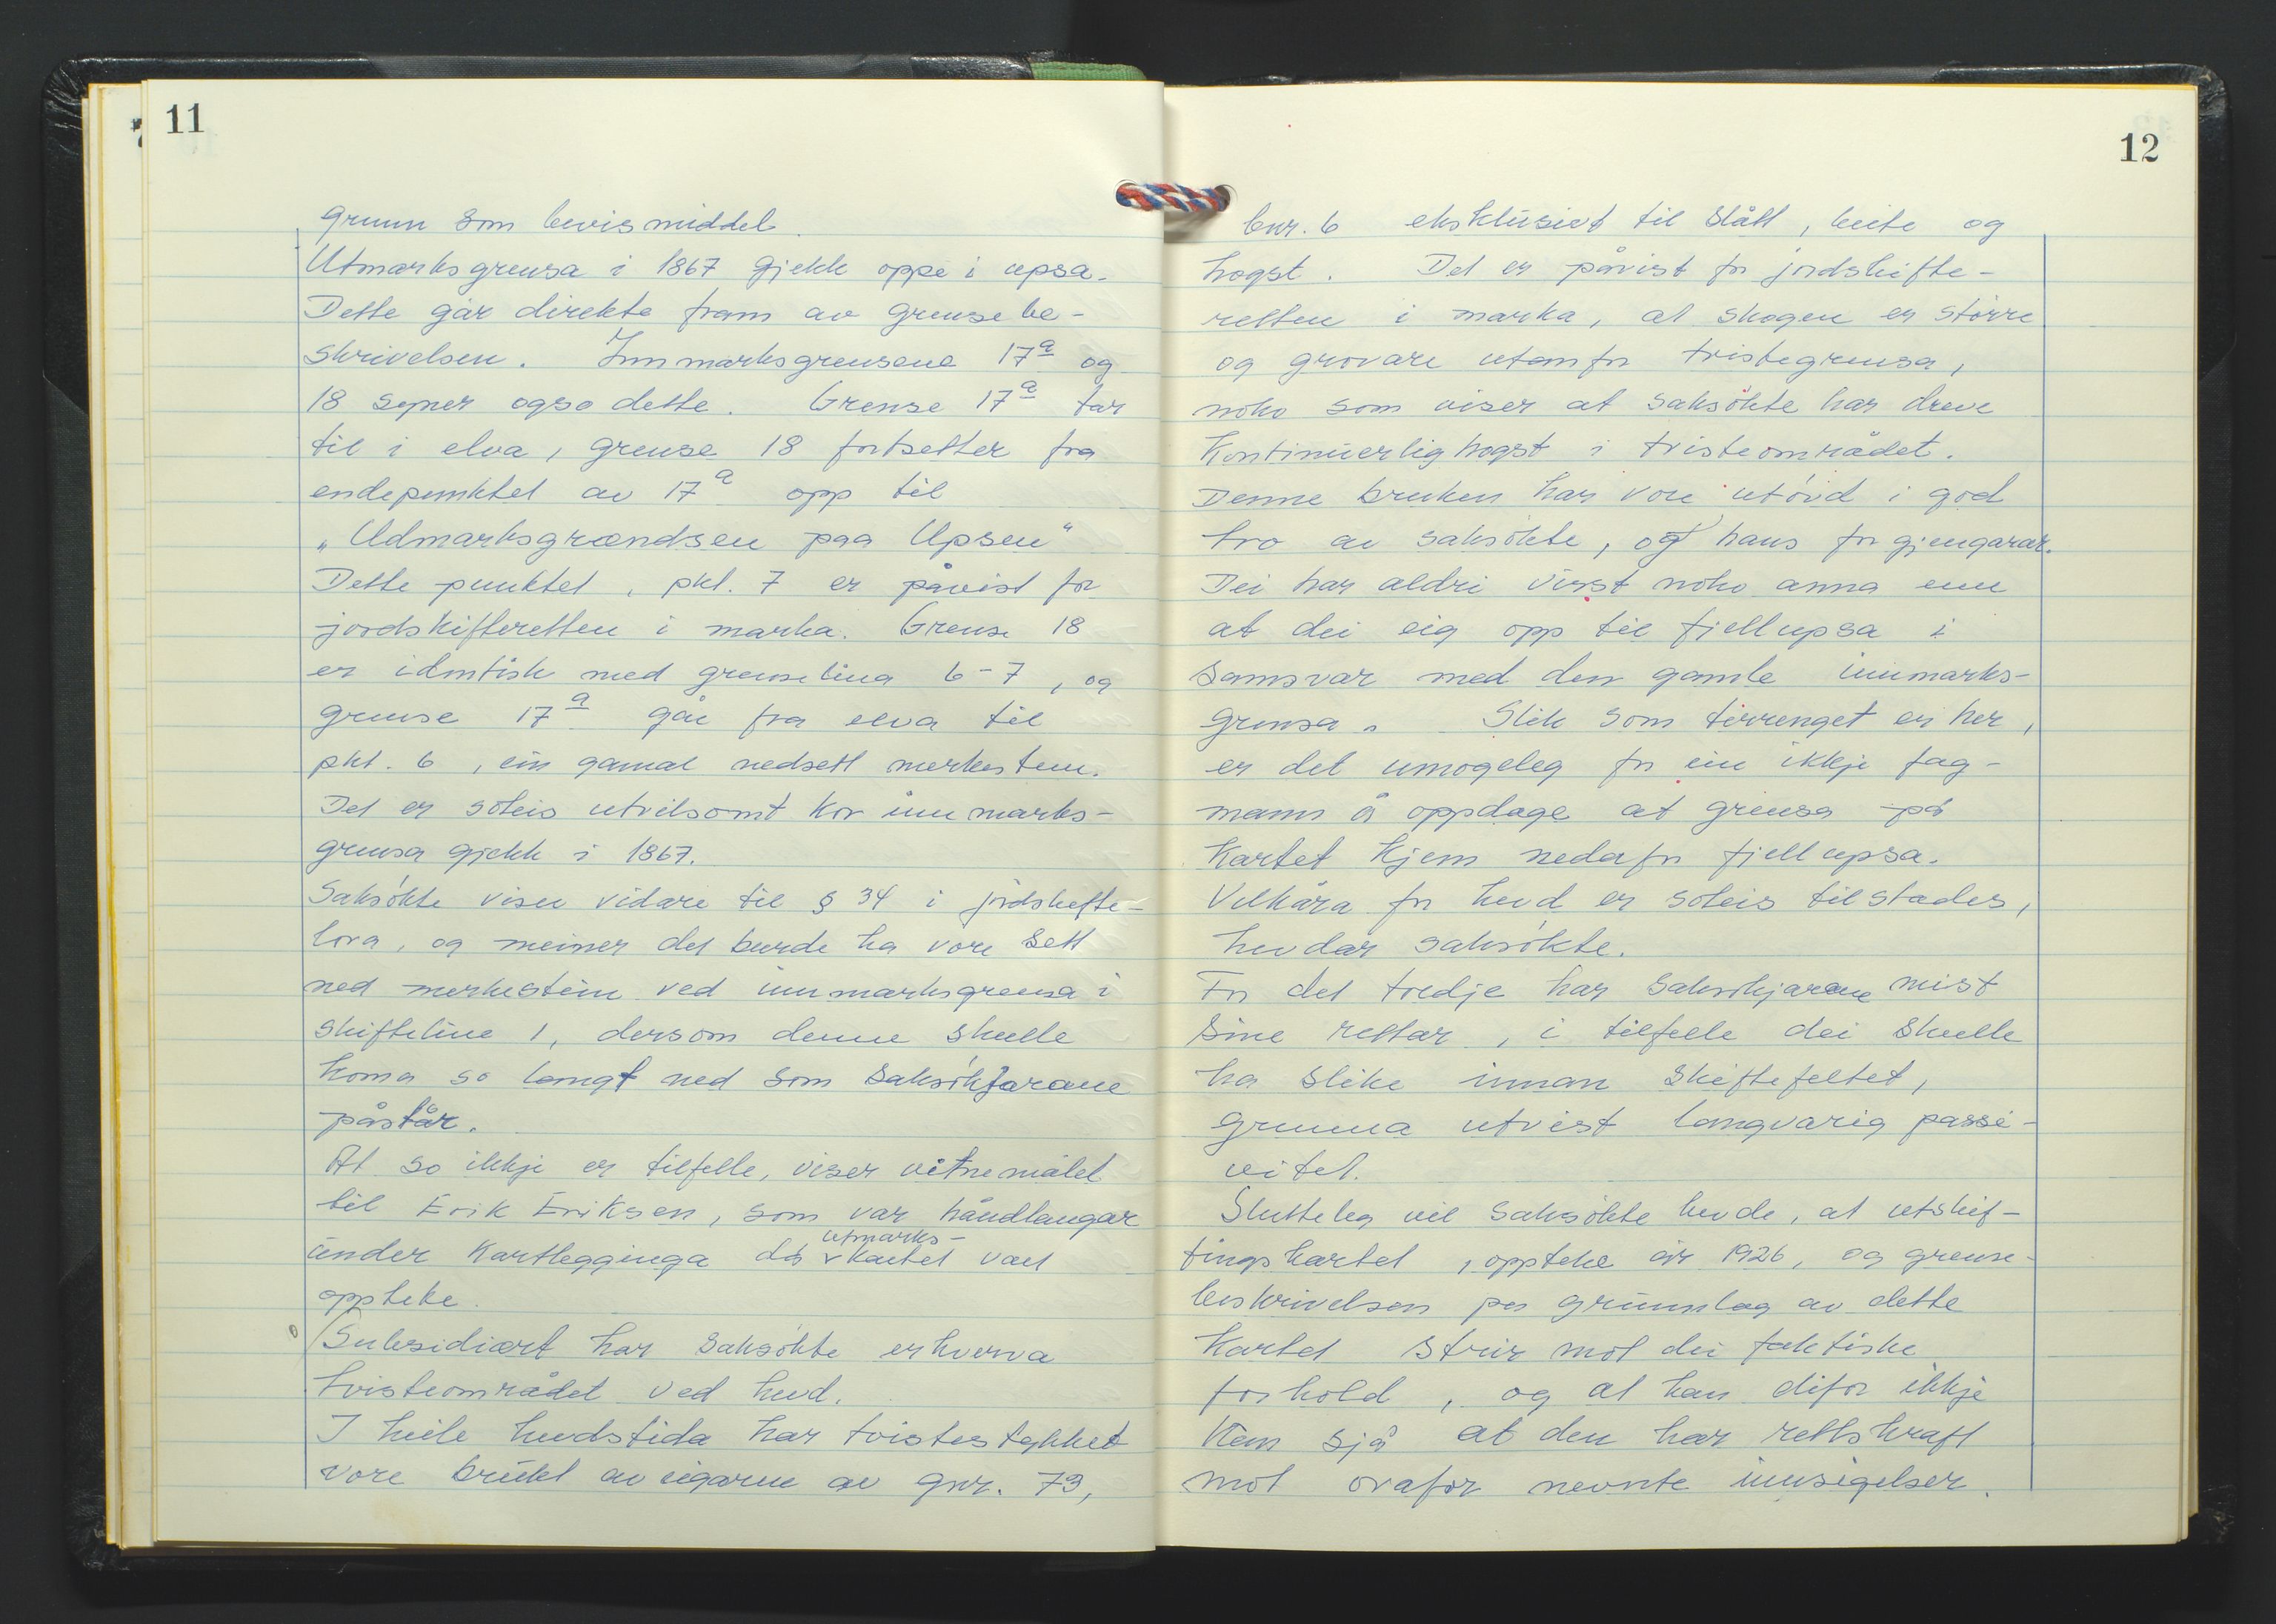 11
grunn som bevismiddel.
Utmarksgrensa i 1867 gjekk oppe i upsa.
Dette går direkte fram av grensebe-
skrivelsen. Innmarksgrensene 17a og
18 syner også dette. Grense 17a tar
til i elva, grense 18 fortsetter fra
endepunktet av 17a opp til
„Udmarksgrændsen paa Upsen"
Dette punktet, pkt. 7 er påvist for
jordskifteretten i marka. Grense 18
er identisk med grenselina 6-7, og
grense 17a går fra elva til
pkt. 6, ein gamal nedsett merkestein.
Det er soleis utvilsomt kor innmarks-
grensa gjekk i 1867.
Saksökte viser vidare til § 34 i jordskifte-
lova, og meiner det burde ha vore sett
ned merkestein ved innmarksgrensa i
skifteline 1, dersom denne skulle
koma so langt ned som saksökjarane
påstår.
At so ikkje er tilfelle, viser vitnemålet
til Erik Eriksen, som var håndlangar
under kartlegginga då utmarks-
kartet vart
oppteke.
Subsidiært har saksökte erhverva
tvisteområdet ved hevd.
I heile hevdstida har tvistestykket
vore brukt av eigarne av gnr. 73,
12
bnr. 6 eksklusivt til slått, beite og
hogst. Det er påvist for jordskifte-
retten i marka, at skogen er större
og grovare utanfor tvistegrensa,
noko som viser at saksökte har dreve
kontinuerlig hogst i tvisteområdet.
Denne bruken har vore utövd i god
tro av saksökte, og hans forgjengarar.
Dei har aldri visst noko anna enn
at dei eig opp til fjellupsa i
samsvar med den gamle innmarks-
grensa. Slik som terrenget er her,
er det umogeleg for ein ikkje fag-
mann å oppdage at grensa på
kartet kjem nedafor fjellupsa.
Vilkåra for hevd er soleis tilstades,
hevdar saksökte.
For det tredje har saksökjarane mist
sine rettar, i tilfelle dei skulle
ha slike innan skiftefeltet,
grunna utvist langvarig passi-
vitet.
Slutteleg vil saksökte hevde, at utskif-
tingskartet, oppteke år 1926, og grense-
beskrivelsen på grunnlag av dette
kartet strir mot dei faktiske
forhold, og at han difor ikkje
kan sjå at den har rettskraft
mot ovafor nevnte innsigelser.